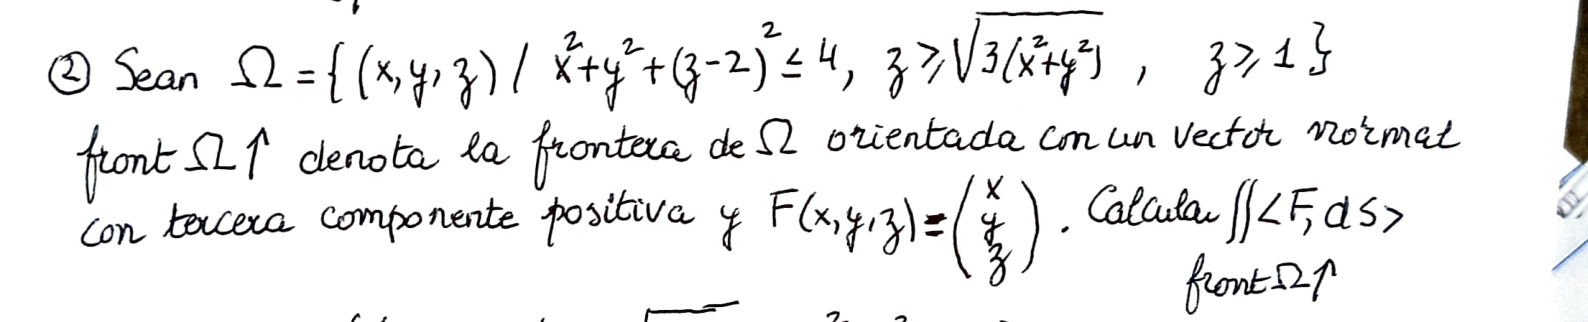 ② Sean Ω = { (x,y,z) / x²+y²+(z-2)² ≤ 4, z ≥ √3(x²+y²) , z ≥ 1 }
front Ω↑ denota la frontera de Ω orientada con un vector normal
con tercera componente positiva y F(x,y,z) = (x y z). Calcular ∬<F, dS>
front Ω↑